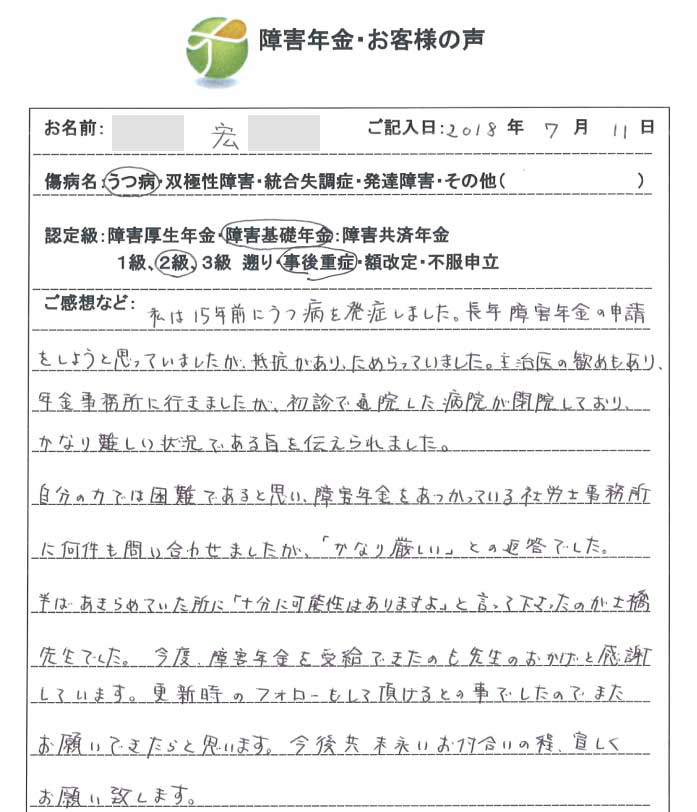 障害年金・お客様の声
お名前: 宏 ご記入日:2018 年 7 月 11 日
傷病名:うつ病・双極性障害・統合失調症・発達障害・その他( )
認定級:障害厚生年金・障害基礎年金:障害共済年金
1級、2級、3級 遡り・事後重症・額改定・不服申立
ご感想など: 私は15年前にうつ病を発症しました。長年障害年金の申請
をしようと思っていましたが、抵抗があり、ためらっていました。主治医の勧めもあり、
年金事務所に行きましたが、初診で通院した病院が閉院しており、
かなり難しい状況である旨を伝えられました。
自分の力では困難であると思い、障害年金をあつかっている社労士事務所
に何件も問い合わせましたが、「かなり厳しい」との返答でした。
半ばあきらめていた所に「十分に可能性はありますよ」と言って下さったのが土橋
先生でした。今度、障害年金を受給できたのも先生のおかげと感謝
しています。更新時のフォローもして頂けるとの事でしたのでまた
お願いできたらと思います。今後共末永いお付合いの程、宜しく
お願い致します。